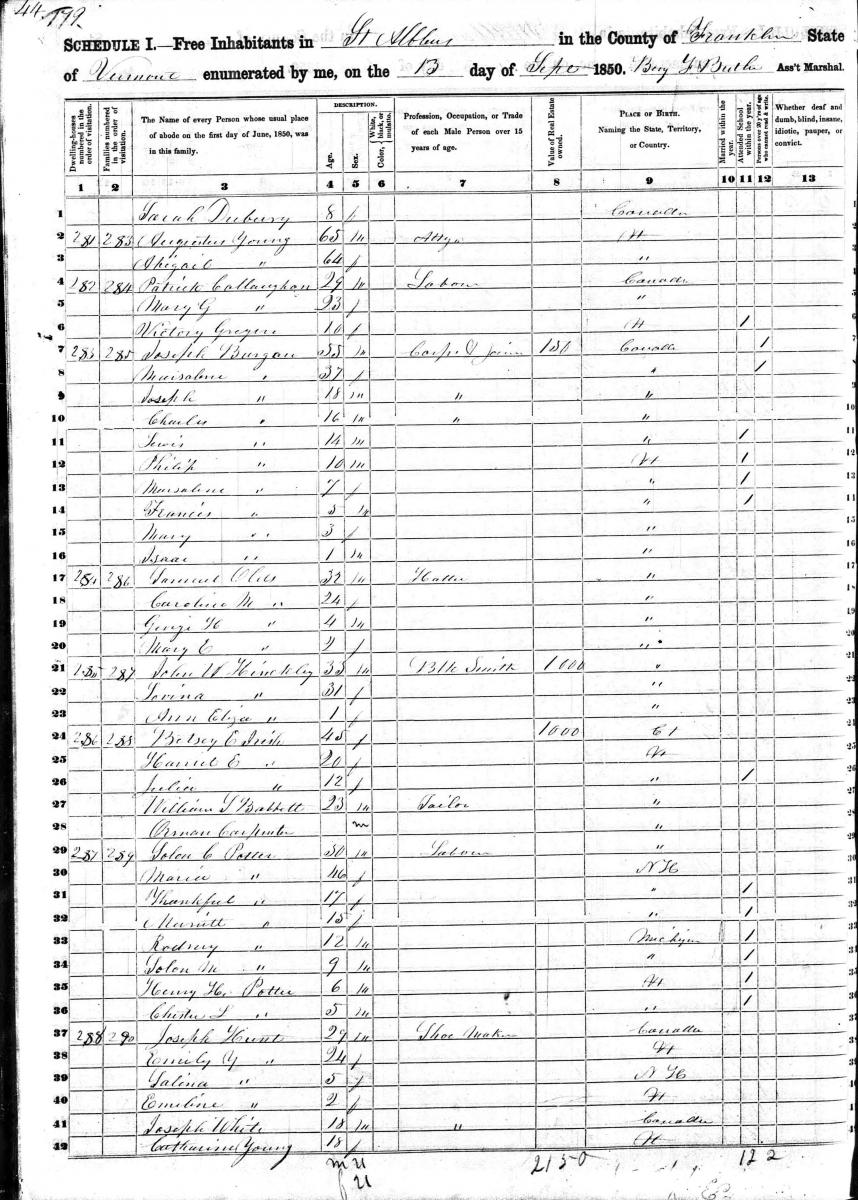 44. 799
SCHEDULE I.—Free Inhabitants in St Albans in the County of Franklin State
of Vermont enumerated by me, on the 13 day of Sept 1850. Benj Butler Ass't Marshal.
Dwelling-houses numbered in the order of visitation. Families numbered in the order of visitation. The Name of every Person whose usual place of abode on the first day of June, 1850, was in this family. DESCRIPTION. Age. Sex. White, black, or mulatto. Color, Profession, Occupation, or Trade of each Male Person over 15 years of age. Value of Real Estate owned. PLACE OF BIRTH. Naming the State, Territory, or Country. Married within the year. Attended School within the year. Persons over 20 y'rs of age who cannot read & write. Whether deaf and dumb, blind, insane, idiotic, pauper, or convict.
1 2 3 4 5 6 7 8 9 10 11 12 13
1 Sarah Dubury 8 f Canada
2 281 283 Augustus Young 65 m Atty Vt
3 Abigail " 64 f "
4 282 284 Patrick Callaughan 29 m Labour Canada
5 Mary G " 23 f "
6 Victory 10 f Vt 1
7 283 285 Joseph Burgan 55 m Carpr & Joiner 150 Canada 1
8 " 37 f " 1
9 Joseph " 18 m " "
10 Charles " 16 m " "
11 Lewis " 14 m " 1
12 Philip " 10 m Vt 1
13 " 7 f " 1
14 Francis " 5 m " 1
15 Mary " 3 f "
16 Isaac " 1 m "
17 284 286 Samuel 32 m Hatter "
18 Caroline M " 24 f "
19 George H " 4 m "
20 Mary E " 2 f "
21 285 287 John W Hinckley 33 m Blk Smith 1000 "
22 Lovina " 31 f "
23 Ann Eliza " 1 f "
24 286 288 Betsey E Irish 45 f 1000 Ct
25 Harriet E " 20 f Vt
26 Julia " 12 f " 1
27 William S Babbott 23 m Tailor "
28 Orman Carpenter m "
29 287 289 Solon C Potter 50 m Labour "
30 Maria " 46 f N H
31 Thankful " 17 f " 1
32 Merritt " 15 f " 1
33 Rodney " 12 m Michigan 1
34 Solon M " 9 m " 1
35 Henry H. Potter 6 m Vt 1
36 Chester L " 5 m " 1
37 288 290 Joseph Hunt 29 m Shoe Maker Canada
38 Emily Y " 24 f Vt
39 Salina " 5 f N H
40 Emeline " 2 f Vt
41 Joseph White 18 m " Canada
42 Catharine Young 18 f Vt
m 21 2150 12 2
f 21